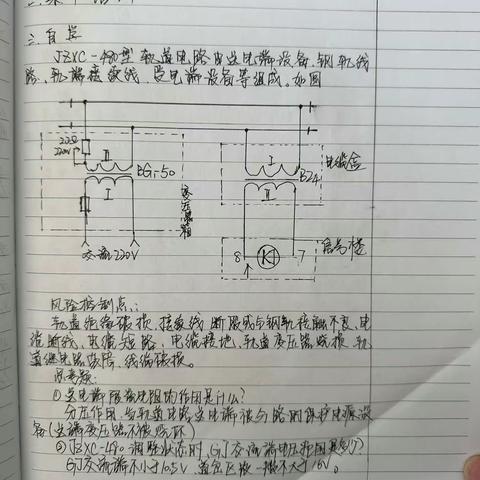 三.自学
JZXC-480型轨道电路由送电端设备、钢轨线
路、轨端接续线、受电端设备等组成。如图
2.2Ω
220V
Ⅱ
BG1-50
Ⅰ
交流220V
Ⅰ
BZ4
Ⅱ
电缆盒
信号楼
8
7
风险控制点:
轨道绝缘破损、接续线断股或与钢轨接触不良、电
缆断线、电缆短路、电缆接地、轨道变压器烧损、轨
道继电器故障、线缆破损。
思考题:
①送电端限流电阻的作用是什么?
分压作用,当轨道电路送电端被分路时保护电源设
备(送端变压器不被烧坏)
②JZXC-480调整状态时,GJ交流端电压范围是多少?
GJ交流端不小于10.5V,直岔区段一般不大于16V。